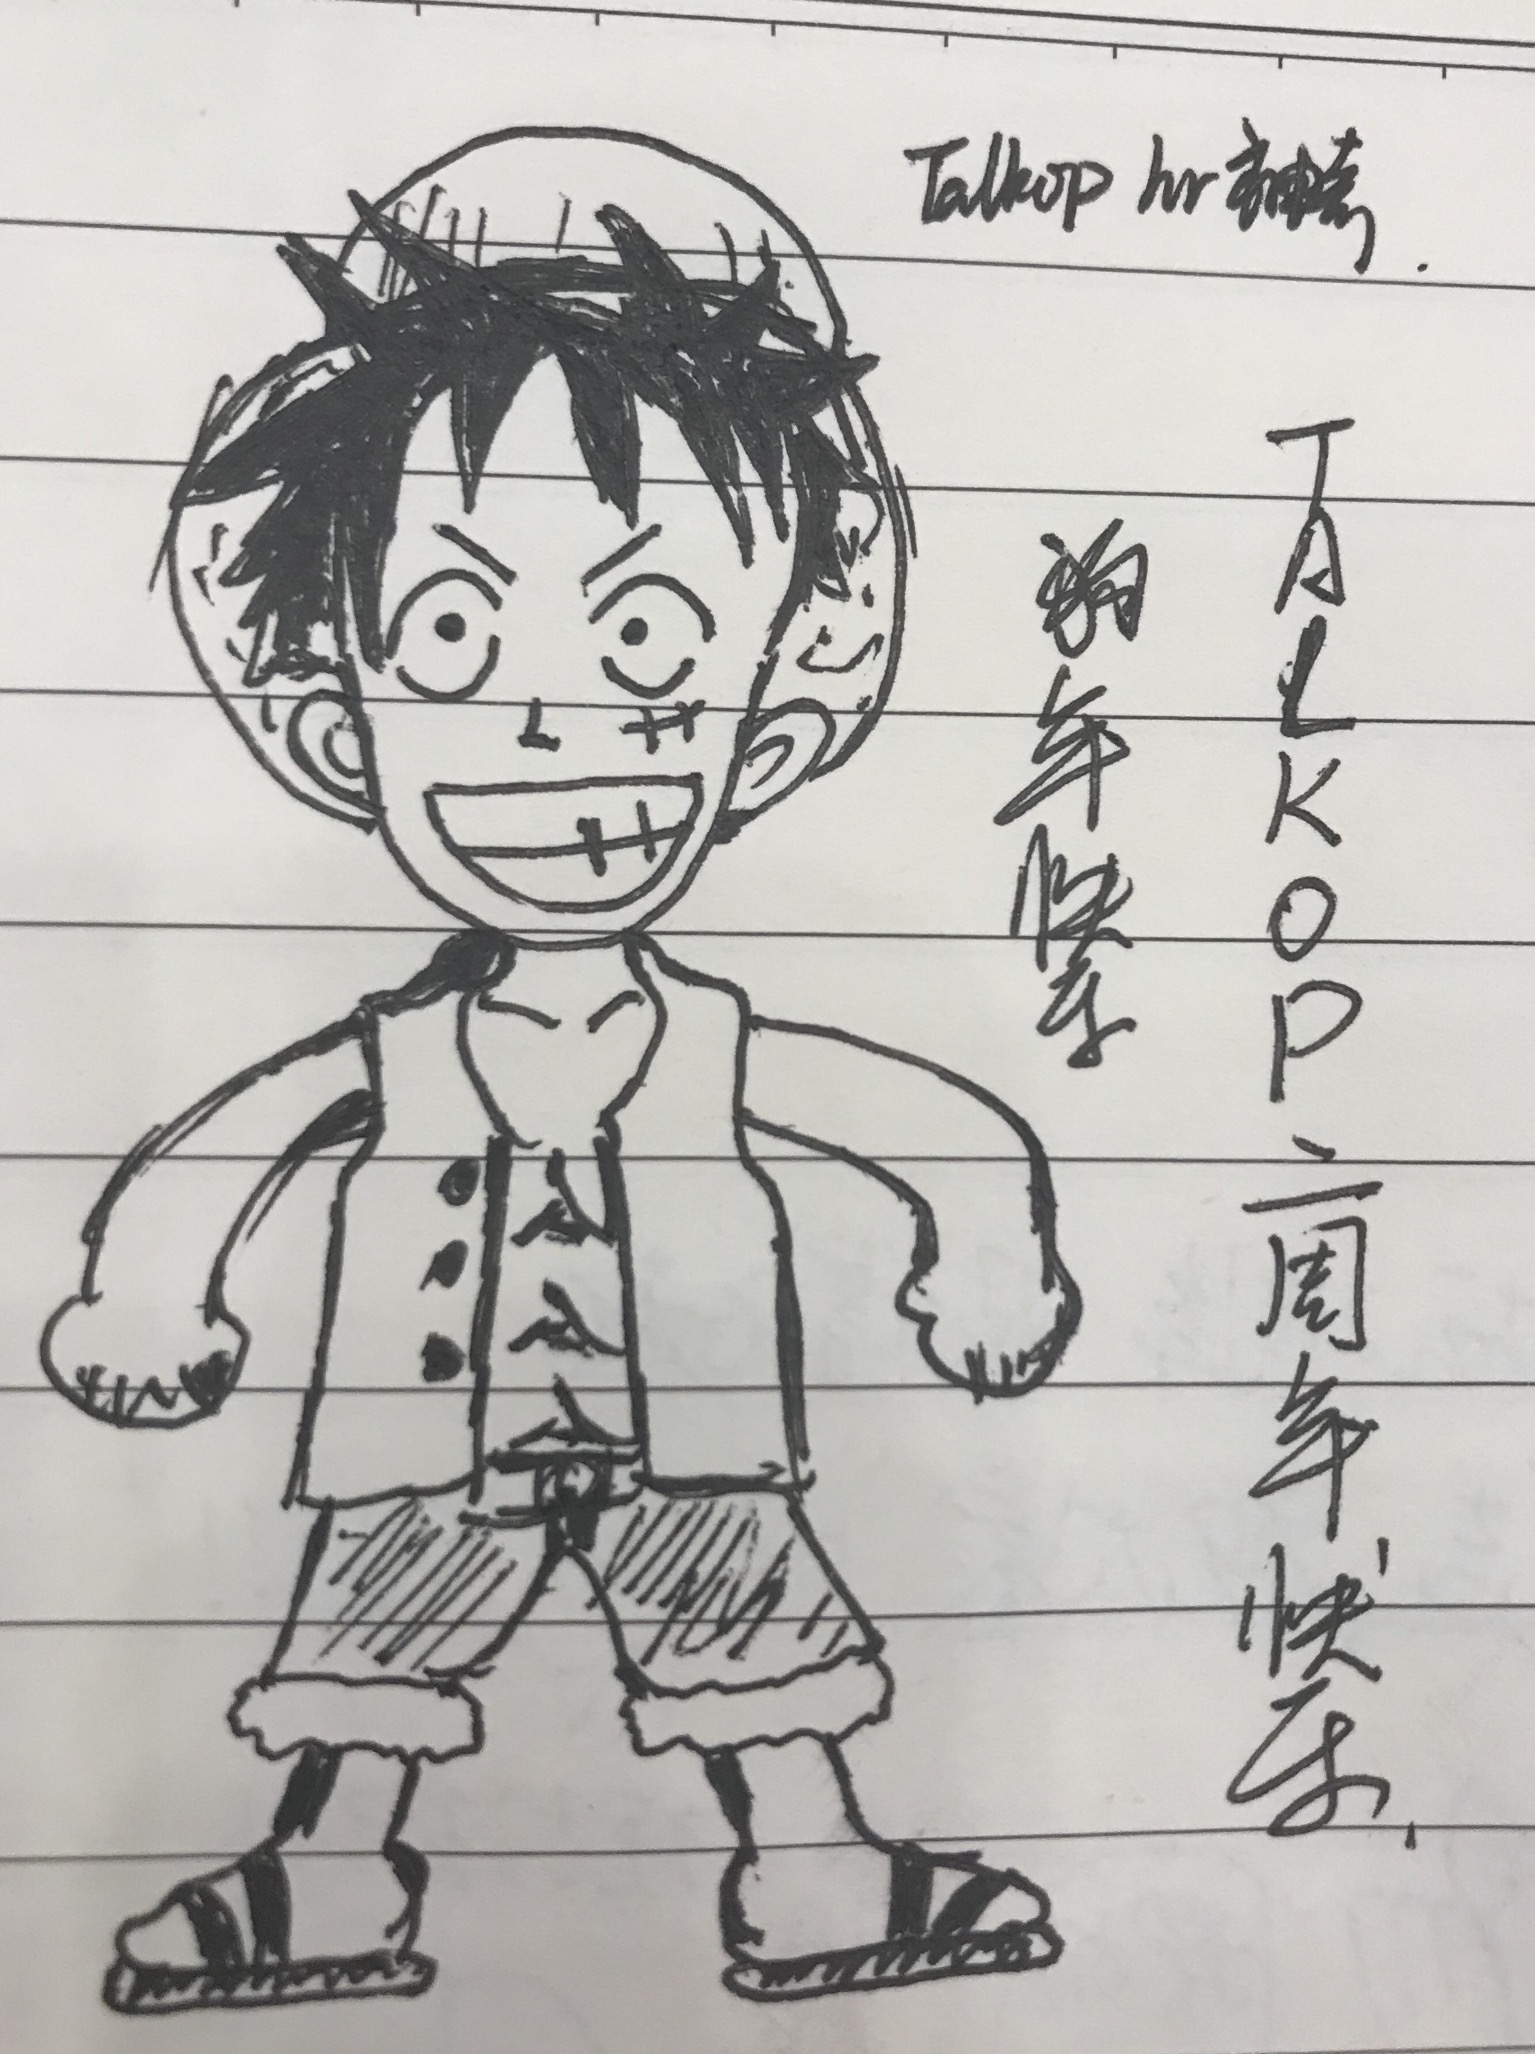 Talkop hr
TALKOP二周年快乐.
狗年快乐